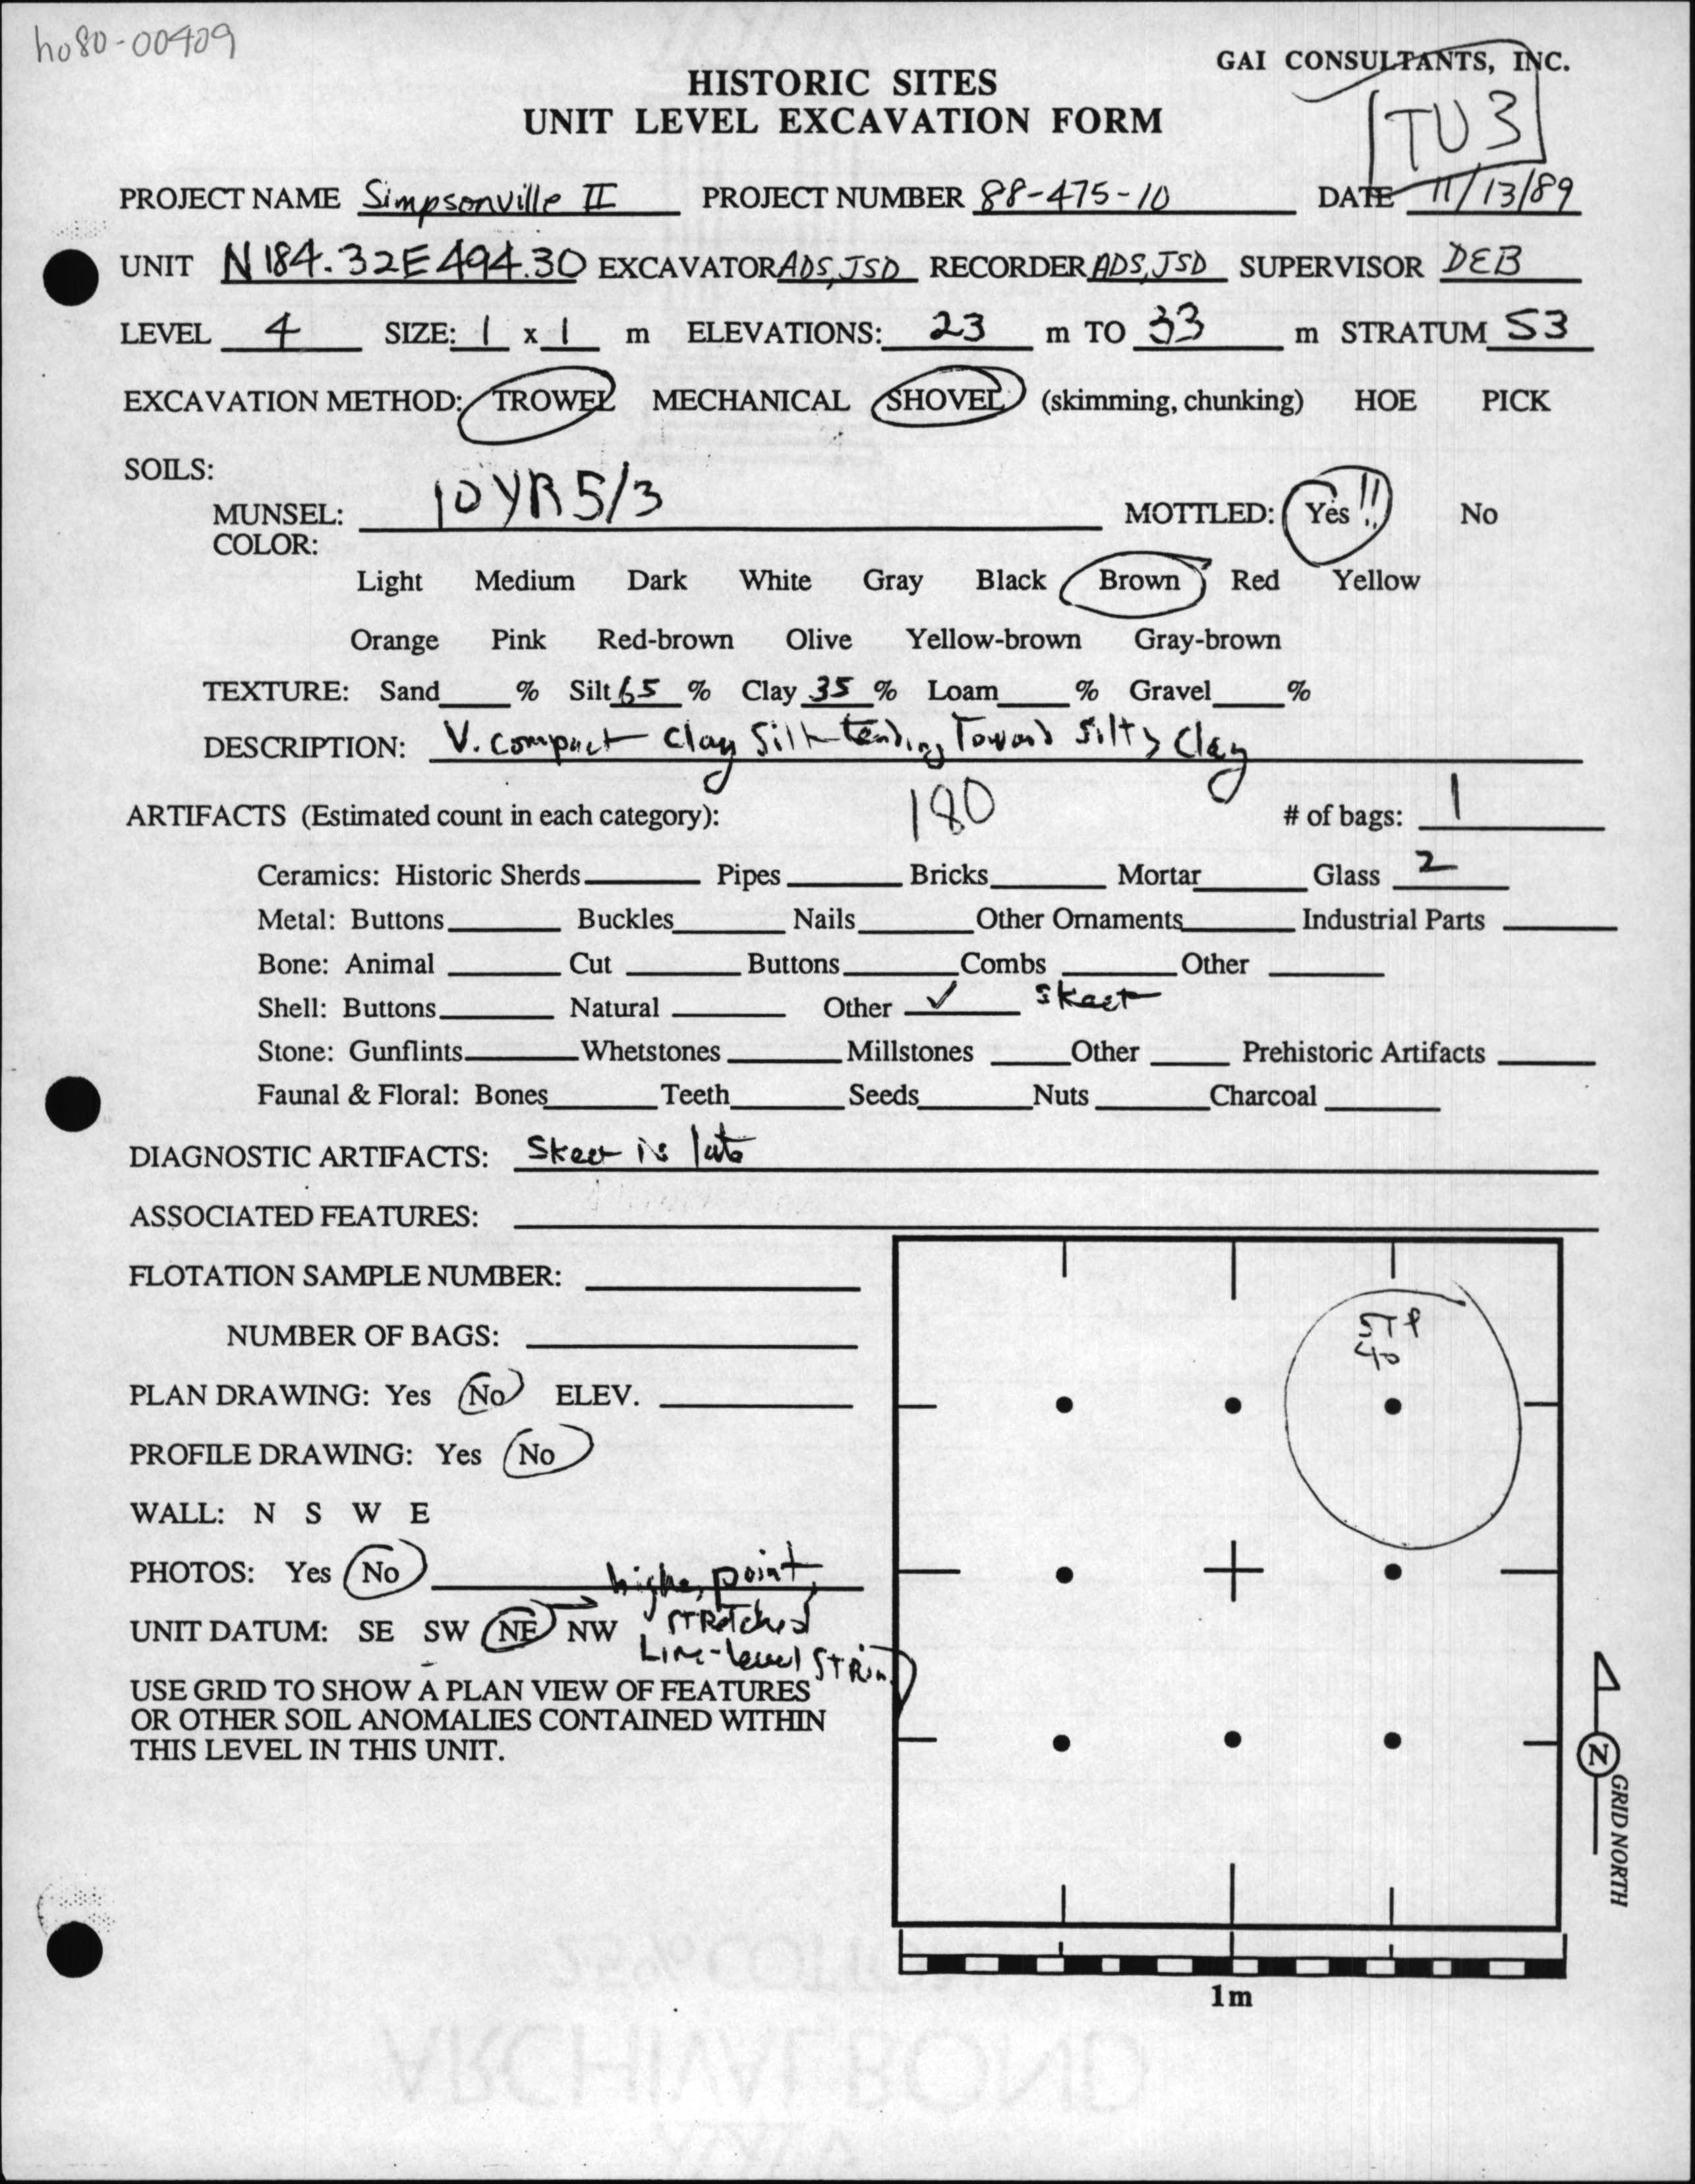 ho80-00409
GAI CONSULTANTS, INC.
HISTORIC SITES
UNIT LEVEL EXCAVATION FORM
TU 3
PROJECT NAME Simpsonville II PROJECT NUMBER 88-475-10 DATE 11/13/89
UNIT N184.32E494.30 EXCAVATOR ADS, JSD RECORDER ADS, JSD SUPERVISOR DEB
LEVEL 4 SIZE: 1 x 1 m ELEVATIONS: 23 m TO 33 m STRATUM S3
EXCAVATION METHOD: TROWEL MECHANICAL SHOVEL (skimming, chunking) HOE PICK
SOILS:
MUNSEL: 10YR5/3 MOTTLED: Yes!! No
COLOR:
Light Medium Dark White Gray Black Brown Red Yellow
Orange Pink Red-brown Olive Yellow-brown Gray-brown
TEXTURE: Sand % Silt 65 % Clay 35 % Loam % Gravel %
DESCRIPTION: V. compact clay silt tending Toward silty clay
ARTIFACTS (Estimated count in each category): 180 # of bags: 1
Ceramics: Historic Sherds Pipes Bricks Mortar Glass 2
Metal: Buttons Buckles Nails Other Ornaments Industrial Parts
Bone: Animal Cut Buttons Combs Other
Shell: Buttons Natural Other ✓ skeet
Stone: Gunflints Whetstones Millstones Other Prehistoric Artifacts
Faunal & Floral: Bones Teeth Seeds Nuts Charcoal
DIAGNOSTIC ARTIFACTS: Skeet is late
ASSOCIATED FEATURES:
FLOTATION SAMPLE NUMBER:
NUMBER OF BAGS:
PLAN DRAWING: Yes No ELEV.
PROFILE DRAWING: Yes No
WALL: N S W E
PHOTOS: Yes No
UNIT DATUM: SE SW NE NW higher point,
stretched
Line-level string
USE GRID TO SHOW A PLAN VIEW OF FEATURES
OR OTHER SOIL ANOMALIES CONTAINED WITHIN
THIS LEVEL IN THIS UNIT.
STP
40
N
GRID NORTH
1m
25% COTTON
ARCHIVAL BOND